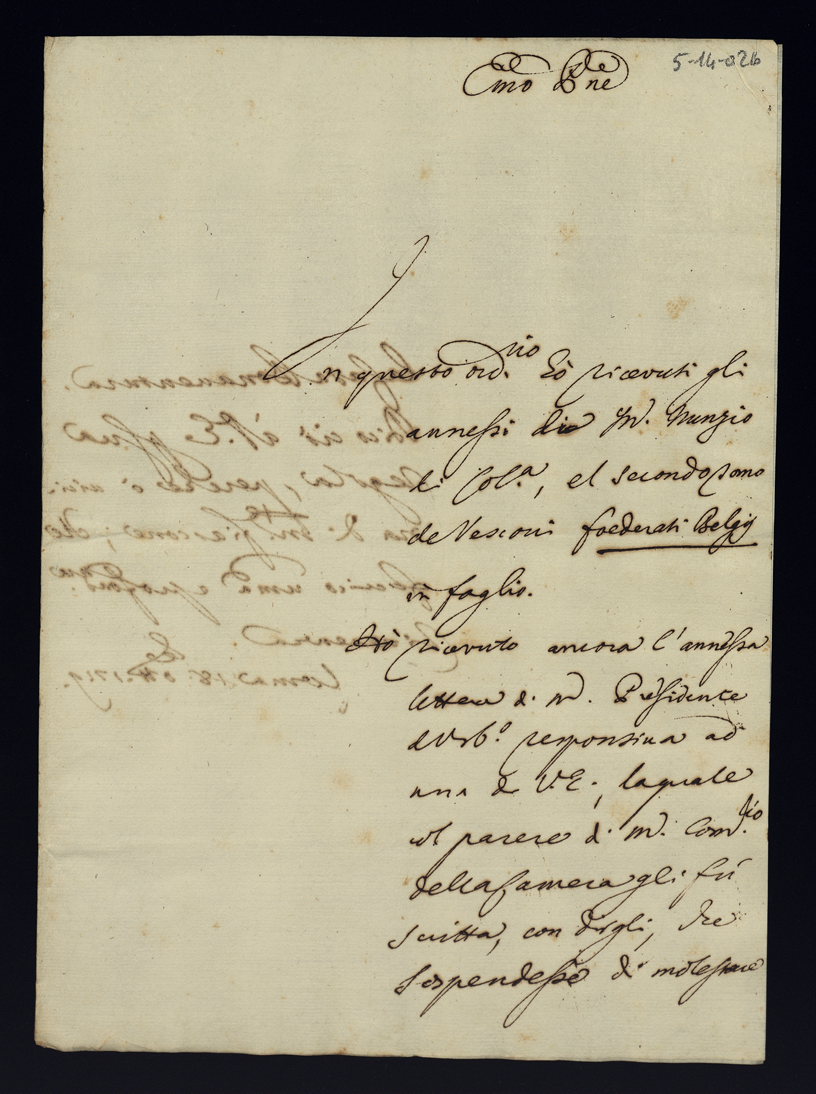 5-14-026
Emo Pne
In questo ord.rio hò ricevuti gli
annessi di M. Nunzio
di Col.a, el secondo tomo
de Vescovi foederati Belgij
in foglio.
Hò ricevuto ancora l'annessa
lettera di M. Presidente
d'Urb.o responsiva ad
una di V.E., la quale
col parere di M. Com.rio
della Camera gli fù
scritta, con dirgli, che
sospendesse di molestare